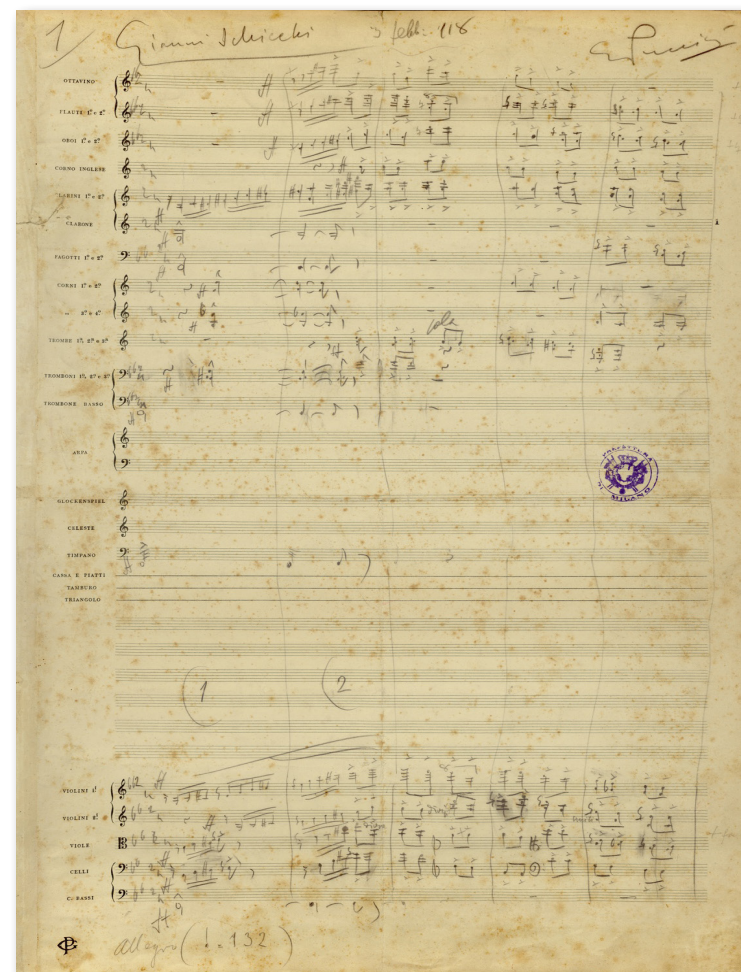 1/ Gianni Schicchi 3 febb. 918 G Puccini
OTTAVINO
FLAUTI 1º e 2º
OBOI 1º e 2º
CORNO INGLESE
CLARINI 1º e 2º
CLARONE
FAGOTTI 1º e 2º
CORNI 1º e 2º
" 3º e 4º
TROMBE 1ª, 2ª e 3ª
TROMBONI 1º, 2º e 3º
TROMBONE BASSO
ARPA
PREFETTURA
DI MILANO
GLOCKENSPIEL
CELESTE
TIMPANO
CASSA E PIATTI
TAMBURO
TRIANGOLO
1 2
VIOLINI 1ⁱ
VIOLINI 2ⁱ
VIOLE
CELLI
C. BASSI
Allegro (♩. = 132)